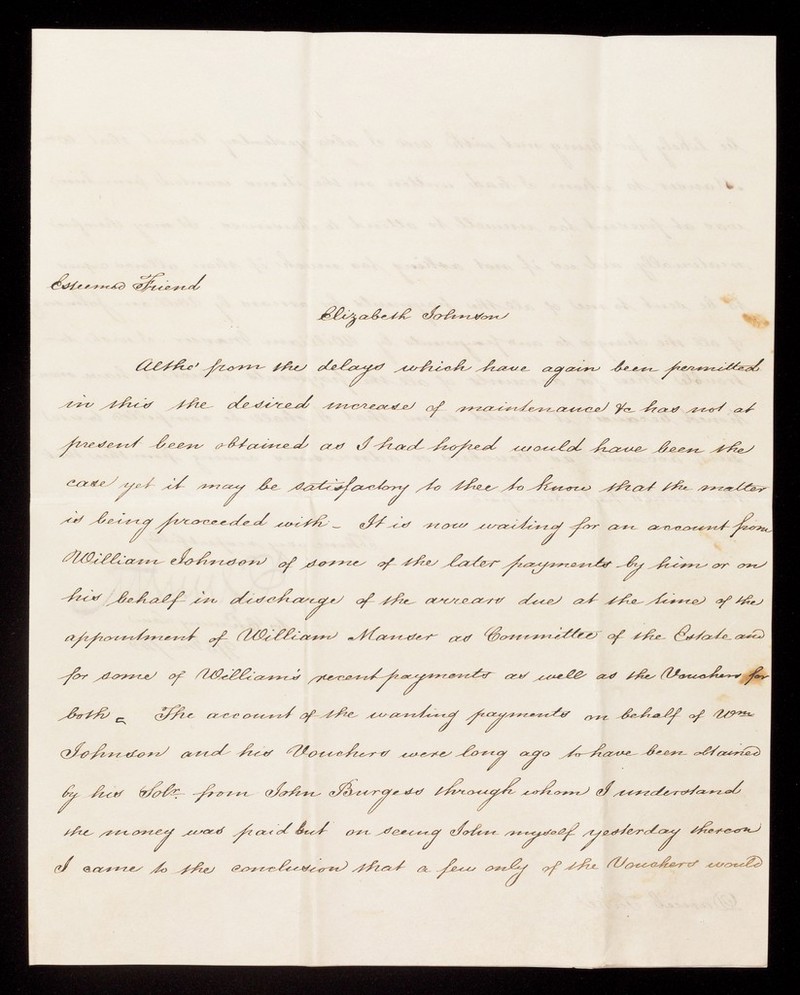 Esteemed Friend
Elizabeth Johnson
Altho' from the delays which have again been permitted
in this the desired increase of maintenance &c has not at
present been obtained as I had hoped would have been the
case yet it may be satisfactory to thee to know that the matter
is being proceeded with – It is now waiting for an account from
William Johnson of some of the later payments by him or on
his behalf in discharge of the arrears due at the time of the
appointment of William Manser as Committee of the Estate and
for some of William's recent payments as well as the Vouchers for
both – The account of the wanting payments on behalf of Wm
Johnson and his Vouchers were long ago to have been obtained
by his Solr. from John Burgess through whom I understand
the money was paid but on seeing John myself yesterday thereon
I came to the conclusion that a few only of the Vouchers would